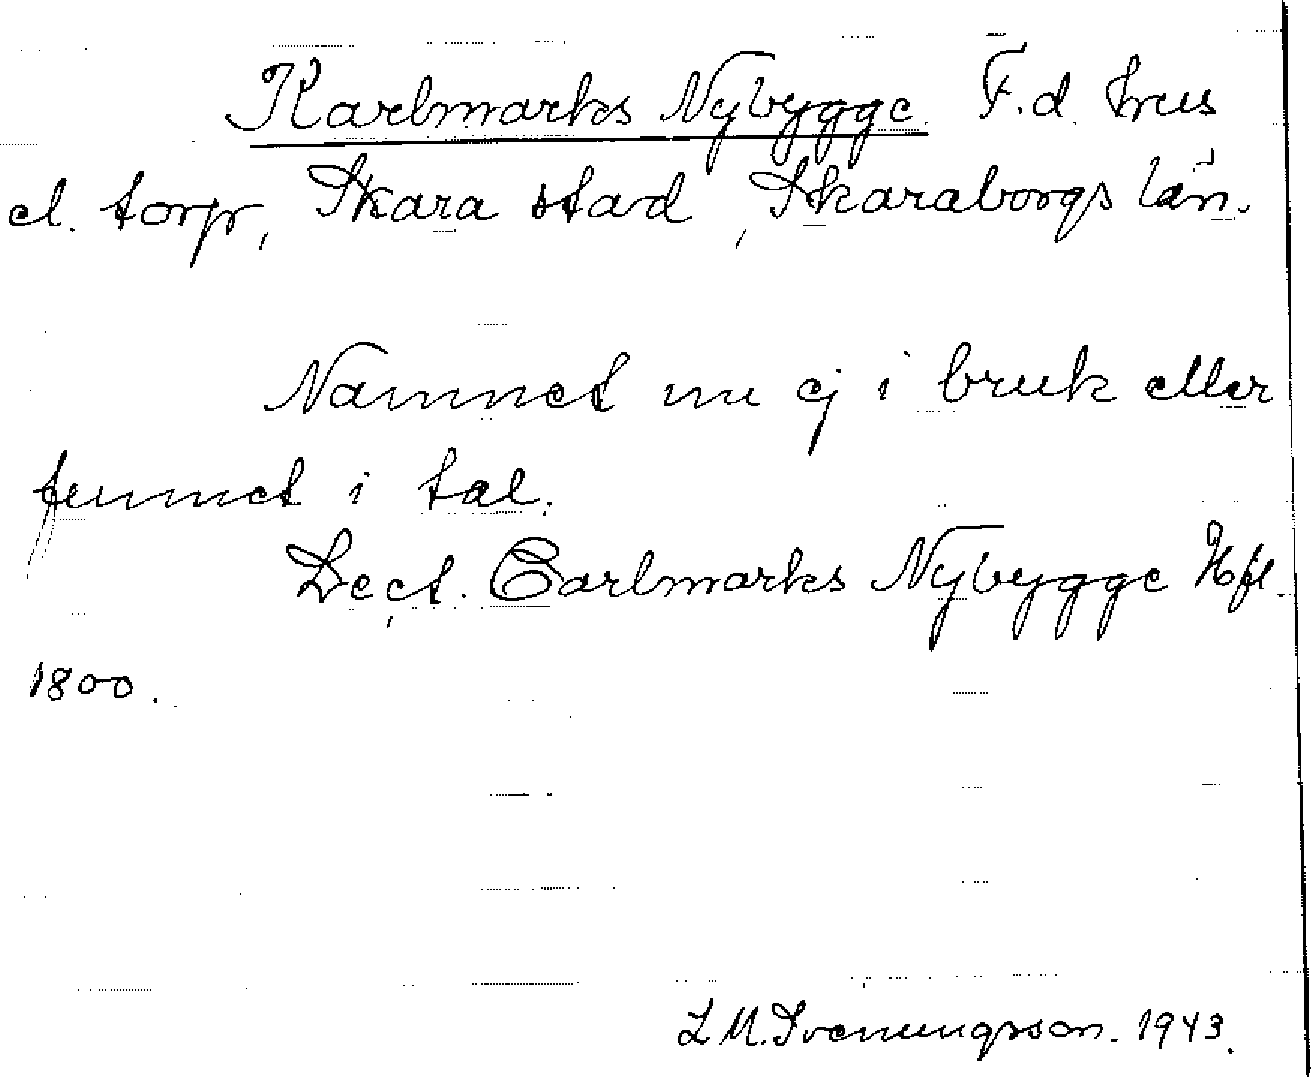 Karlmarks Nybygge. F.d. hus
el. torp, Skara stad, Skaraborgs län.
Namnet nu ej i bruk eller
funnet i tal.
Lect. Carlmarks Nybygge Hfl.
1800.
L M. Svenungsson. 1943.